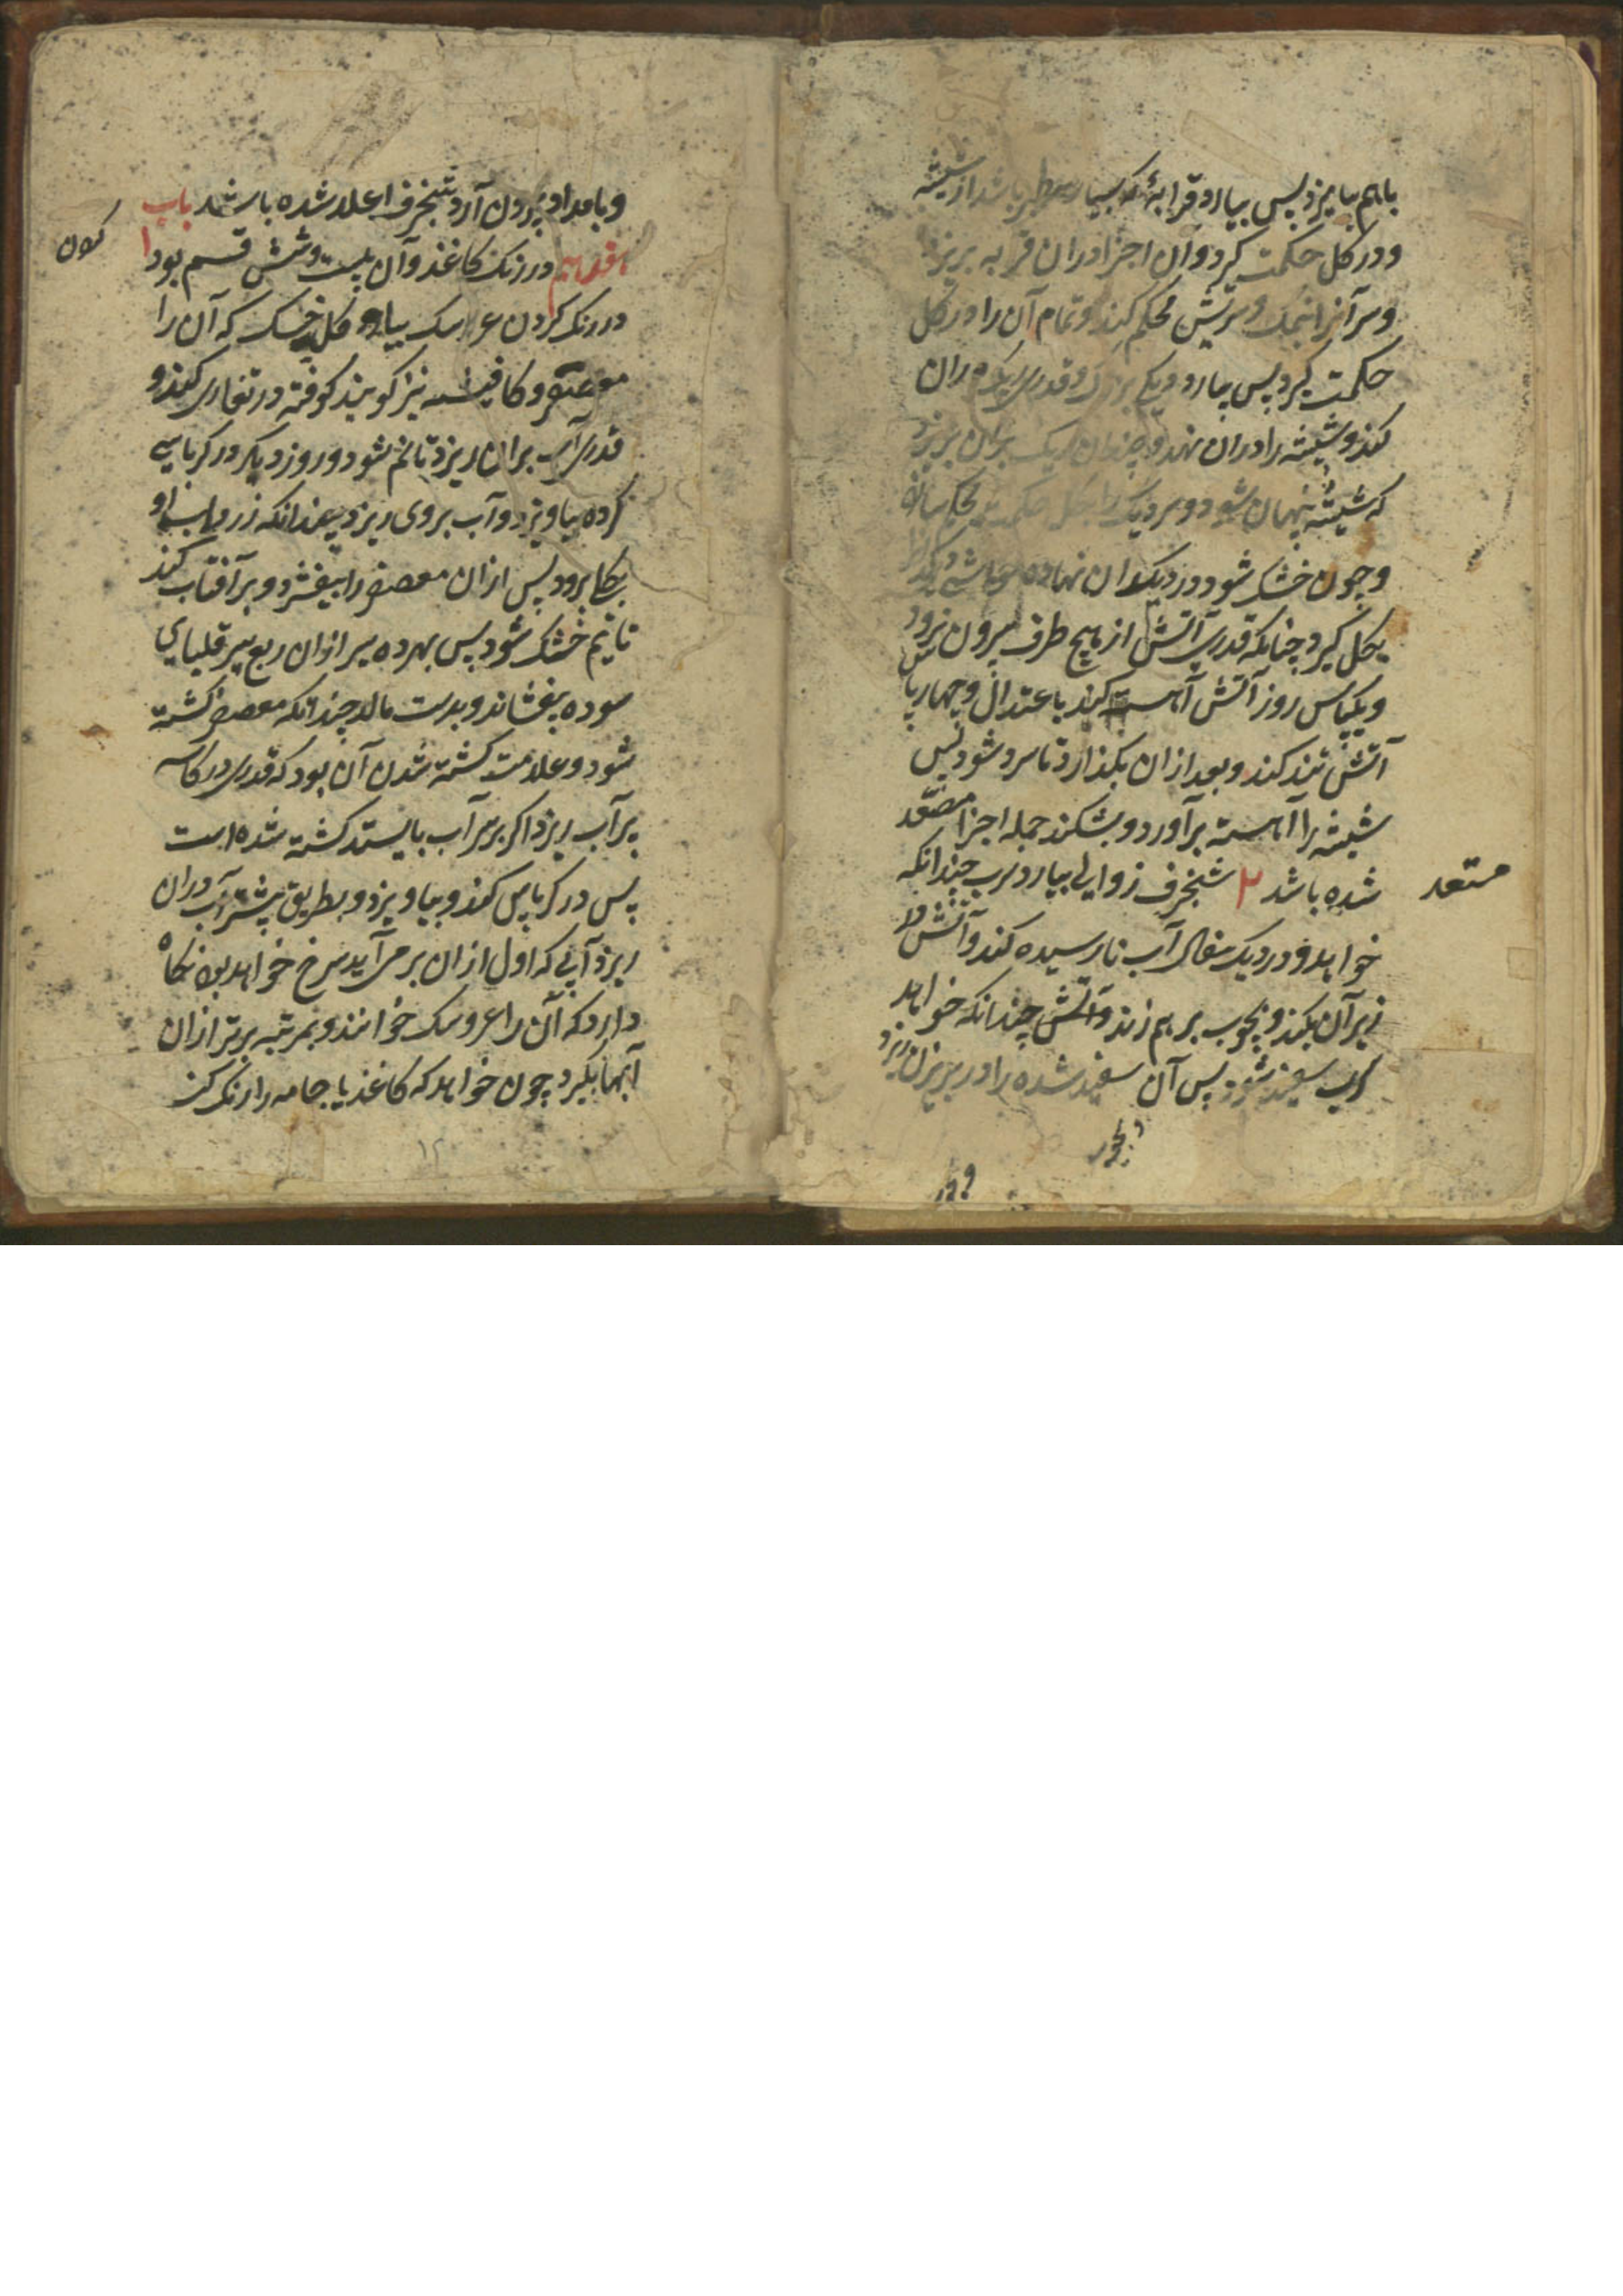 باهم بیامیزد پس بیارد قرابهٔ که بسیار سطبر باشد از شیشه
و در کل حکمت کیرد و آن اجزا در ان قرابه بریزد
و سر آنرا بنمک و سریش محکم کند و تمام آن را در کل
حکمت کیرد پس بیارد دیکی بزرک و قدری ریک در ان
کند و شیشه را در ان نهد و چندان ریک بران بریزد
که شیشه پنهان شود و سر دیک را بکل حکمت محکم سازد
و چون خشک شود در دیکدان نهاده
بکل کیرد چنانکه قدری آتش از هیچ طرف بیرون نرود
و یکپاس روز آتش آهسته کند باعتدال و چهار پاس
آتش تند کند و بعد از ان بکذارد تا سرد شود پس
شیشه را آهسته برآورد و بشکند جمله اجزا مصعد
شده باشد ۲ شنجرف زوایلی بیارد سرب چندانکه
مستعد
خواهد و در دیک سفال آب نارسیده کند و آتش در
زیر آن بکند و بچوب بر هم زند و آتش چندانکه خواهد
سرب سفید شود پس آن سفید شده را در پرویزن ریزد
و در
و بامداد بیرون آرد شنجرف اعلا شده باشد باب
هفدهم در رنک کاغذ و آن بیست و شش قسم بود ۱
در رنک کردن عروسک بیارد کل خسک که آن را
معصفر و کافیشه نیز کویند کوفته در تغاری کند و
قدری آب بران ریزد تا نم شود و روز دیکر در کرباسی
کرده بیاویزد و آب بروی ریزد چندانکه زرداب او
بکلی برود پس از ان معصفر را بیفشرد و بر آفتاب کند
تا نیم خشک شود پس بهر ده سیر از ان ربع سیر قلیای
سوده بیفشاند و بدست مالد چندانکه معصفر کشته
شود و علامت کشته شدن آن بود که قدری در کاسه
پر آب ریزد اکر بر سر آب بایستد کشته شده است
پس در کرباس کند و بیاویزد و بطریق پیشتر آب در ان
ریزد آبی که اول از ان بر می آید سرخ خواهد بود نکاه
دارد که آن را عروسک خوانند و بمرتبه برتر از ان
آبها بکیرد چون خواهد که کاغذ یا جامه را رنک کند
۱۲